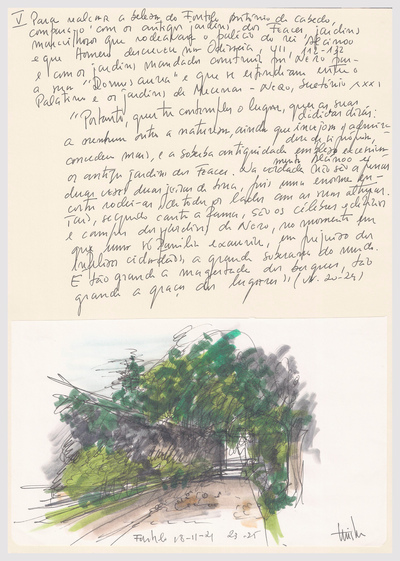 V Para realçar a beleza do Fontelo António do Cabedo,
comparaj-o com os antigos jardins dos Feaces, jardins
maravilhosos que rodeavam o palácio do rei Alcinoo
e que Homero descreveu na Odisseia, VII, 112-132
e com os jardins mandados construir por Nero
a sua "Domus aurea" e que se estendiam entre o
Palatino e os jardins de Mecenas - Nero, Suetónio XXXI
"Portanto, quem contemple o lugar, que as suas
dádivas dirás:
a nenhum outro a natureza, ainda que invejosa
concedeu mais, e a soberba antiguidade
os antigos jardins dos Feaces. Na verdade não são apenas
duas vezes duas jeiras de terra, pois uma enorme
rodeia-os todos os lados com as suas
Tais, segundo canta a fama, são os célebres
e campos dos jardins de Nero, no momento em
que uma só família exauria, em prejuízo dos
infelizes cidadãos, a grande soberana do mundo.
É tão grande a magestade dos bosques, tão
grande a graça dos lugares" (v. 20-29)
Fontelo 28-11-21 23.25